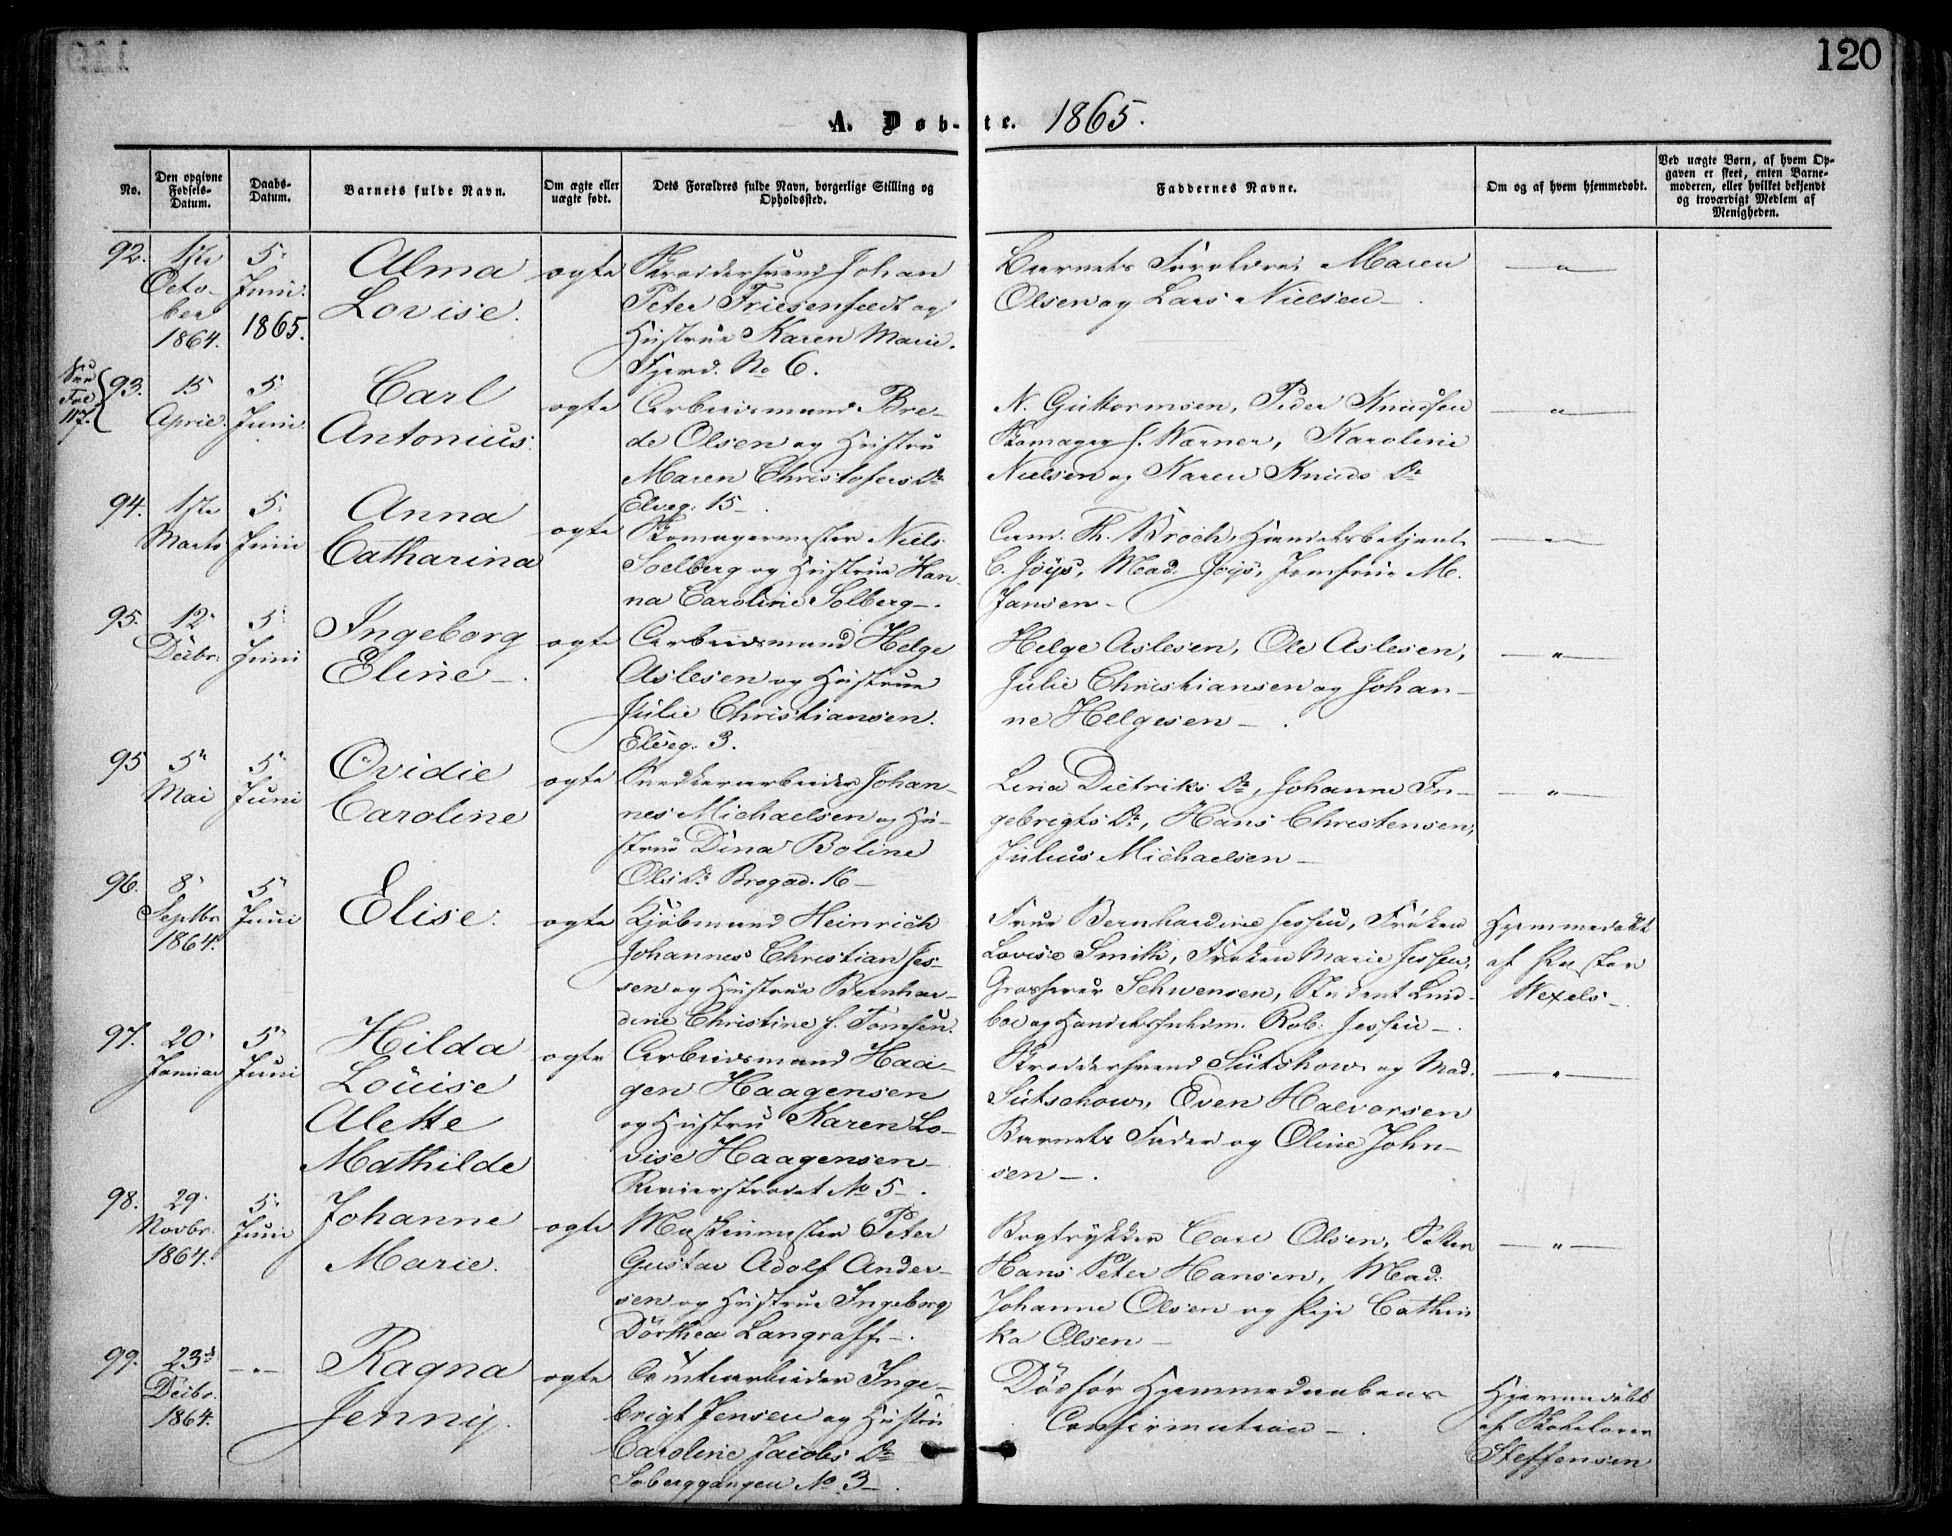 120
A. Døb-te. 1865.
No.
Den opgivne Fødsels-Datum.
Daabs-Datum.
Barnets fulde Navn.
Om ægte eller uægte født.
Dets Forældres fulde Navn, borgerlige Stilling og Opholdssted.
Faddernes Navne.
Om og af hvem hjemmedøbt.
Ved uægte Børn, af hvem Op-
gaven er skeet, enten Barne-
moderen, eller hvilket bekjendt
og troværdigt Medlem af
Menigheden.
92. 1ste October 1864. 5. Juni 1865.
Alma
Lovise.
ægte
Skræddersvend Johan
Peter Friesenfeldt og
Hustrue Karen Marie.
Fjerd. No 6.
Barnets Forældre, Maren
Olsen og Lars Nielsen –
— " —
See
Fol
117.
93. 15 April. 5. Juni
Carl
Antonius.
ægte
Arbeidsmand Bre-
de Olsen og Hustru
Maren Christofersdr
Elveg. 15 –
N. Guttormsen, Peder Knudsen
Skomager f. Warner, Karoline
Nielsen og Karen Knuds Dr
— " —
94. 1ste Marts 5. Juni
Anna
Catharina
ægte
Skomagermester Niels
Soelberg og Hustrue Han-
na Caroline Solberg –.
Cand. Th. Broch, Handelsbetjent
C. Jöys, Mad. Joys, Jomfrue M.
Jansen –
— " —
95. 12. Decbr. 5. Juni
Ingeborg
Eline –.
ægte
Arbeidsmand Helge
Aslesen og Hustrue
Julie Christiansen.
Elveg. 3.
Helge Aslesen, Ole Aslesen,
Julie Christiansen og Johan-
ne Helgesen –.
— " —
95 5. Mai 5. Juni
Ovidie
Caroline
ægte
Snedkerarbeider Johan-
nes Michaelsen og Hu-
strue Dina Boline
Ols Dr. Brogad. 16 –
Lina Dietriks Dr, Johanne In-
gebrigts Dr, Hans Christensen,
Julius Michaelsen –
— " —
96. 8. Septbr 1864. 5. Juni
Elise.
ægte
Kjöbmand Heinrich
Johannes Christian Jes-
sen og Hustrue Bernhar-
dine Christine f. Tomsen.
Frue Bernhardine Jessen, Fröken
Lovise Smith, Fröken Marie Jessen,
Grosserer Schwensen, Student Lind-
boe og Handelsfuldm. Rob. Jessen –.
Hjemmedøbt
af Pastor
Wexels –.
97. 20. Januar 5. Juni
Hilda
Louise
Alette
Mathilde
ægte
Arbeidsmand Haa-
gen Haagensen
og Hustru Karen Lo-
vise Haagensen –
Revierstrædet No 5 –.
Skræddersvend Sütshow og Mad.
Sütschow, Even Halvorsen
Barnets Fader og Oline John-
sen –.
— " —
98. 29. Novbr. 1864. 5. Juni
Johanne
Marie.
ægte
Maskinmester Peter
Gustav Adolf Ander-
sen og Hustrue Ingeborg
Dorthea Langraff –.
Bogtrykker Carl Olsen,
Hans Peter Hansen, Mad.
Johanne Olsen og Pige Cathin
ka Olsen –
— " —
99. 23de Decbr. 1864. – " –
Ragna
Jenny.
ægte
Comtiarbeider Inge-
brigt Jensen og Hustru
Caroline Jacobs Dr
Soberggangen No 3 –.
Död før Hjemmedaabens
Confirmation –.
Hjemmedøbt
af Skolelærer
Steffensen